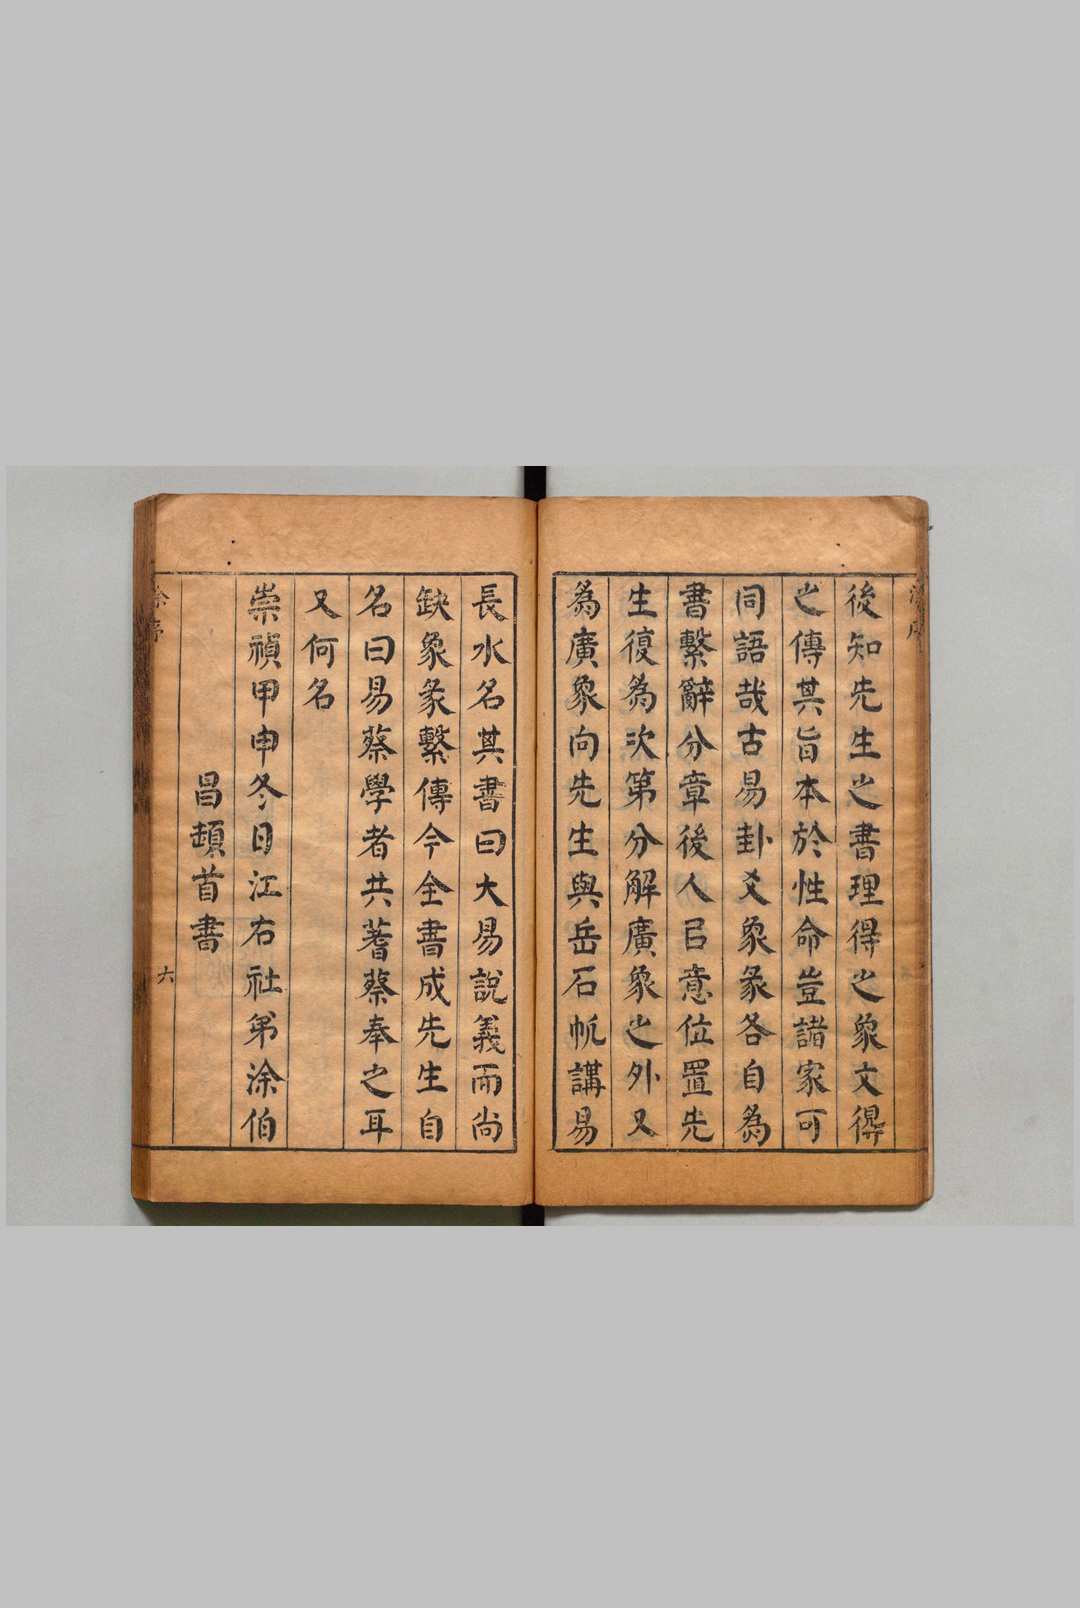 後知先生之書理得之象文得
之傳其旨本於性命豈諸家可
同語哉古易卦爻象彖各自為
書繫辭分章後人㠯意位置先
生復為次第分解廣象之外又
為廣象向先生與岳石帆講易
長水名其書曰大易說義而尚
缺象彖繫傳今全書成先生自
名曰易蔡學者共蓍蔡奉之耳
又何名
崇禎甲申冬日江右社弟涂伯
昌頓首書
涂序
六